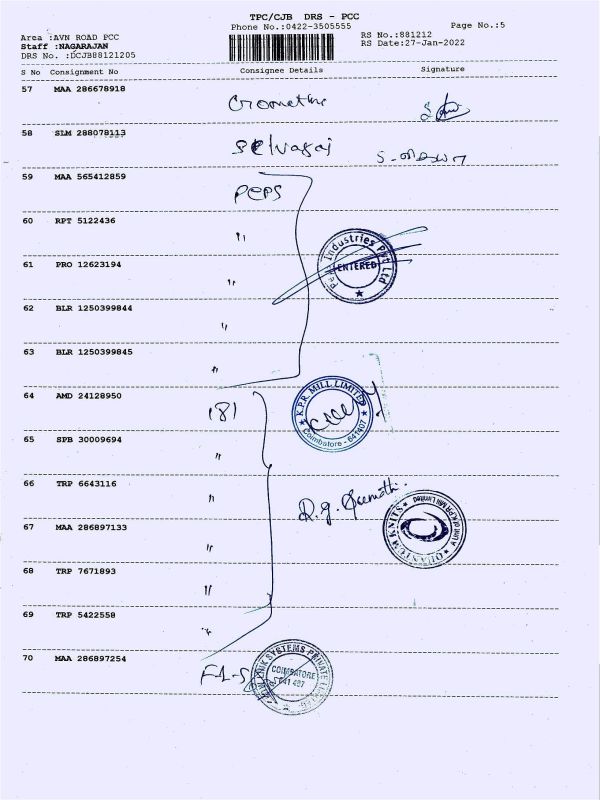 TPC/CJB DRS - PCC
Phone No.:0422-3505555
Page No.:5
Area :AVN ROAD PCC
RS No.:881212
Staff :NAGARAJAN
RS Date:27-Jan-2022
DRS No. :DCJB88121205
S No Consignment No Consignee Details Signature
57 MAA 286678918
58 SLM 288078113
59 MAA 565412859 PEPS
60 RPT 5122436 "
Industries Pvt Ltd
ENTERED
61 PRO 12623194 "
62 BLR 1250399844 "
63 BLR 1250399845 "
64 AMD 24128950 181
K.P.R. MILL LIMITED
Coimbatore - 641407
65 SPB 30009694 "
66 TRP 6643116 "
67 MAA 286897133 "
QUANTUM KNITS
A Unit of K.P.R Mill Limited
68 TRP 7671893 "
69 TRP 5422558 "
70 MAA 286897254
SYSTEMS PRIVATE
COIMBATORE
641 407